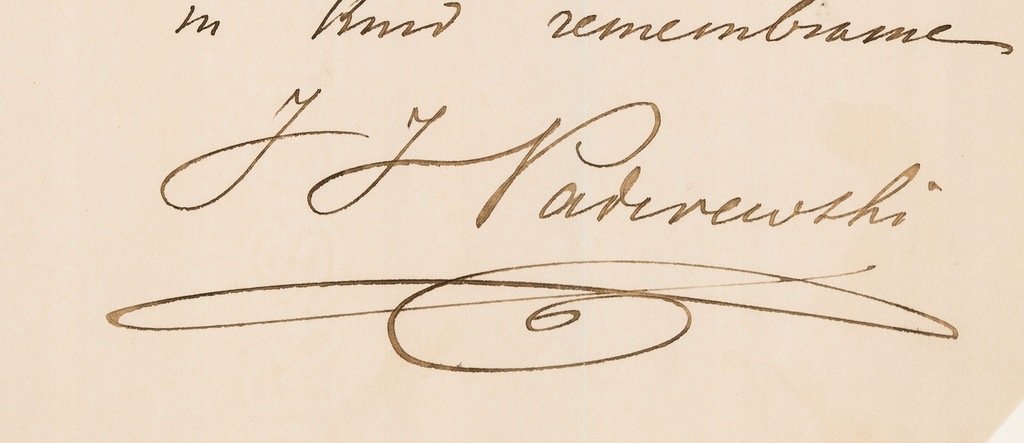 in kind remembrance
I J Paderewski